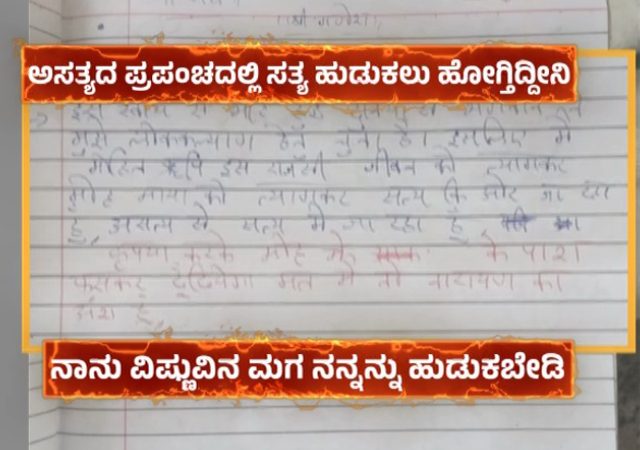 श्री गणेश
ಅಸತ್ಯದ ಪ್ರಪಂಚದಲ್ಲಿ ಸತ್ಯ ಹುಡುಕಲು ಹೋಗ್ತಿದ್ದೀನಿ
मुझे लोककल्याण हेतु चुना है। इसलिए मैं
मोहित ऋषि इस राजसी जीवन को त्यागकर
मोह माया को त्यागकर सत्य कि ओर जा रहा
हु, असत्य से सत्य मे जा रहा हु,
कृपया करके मोह मे के पाश
फसाकर ढुढियेगा मत मै तो नारायण का
अंश हु
ನಾನು ವಿಷ್ಣುವಿನ ಮಗ ನನ್ನನ್ನು ಹುಡುಕಬೇಡಿ